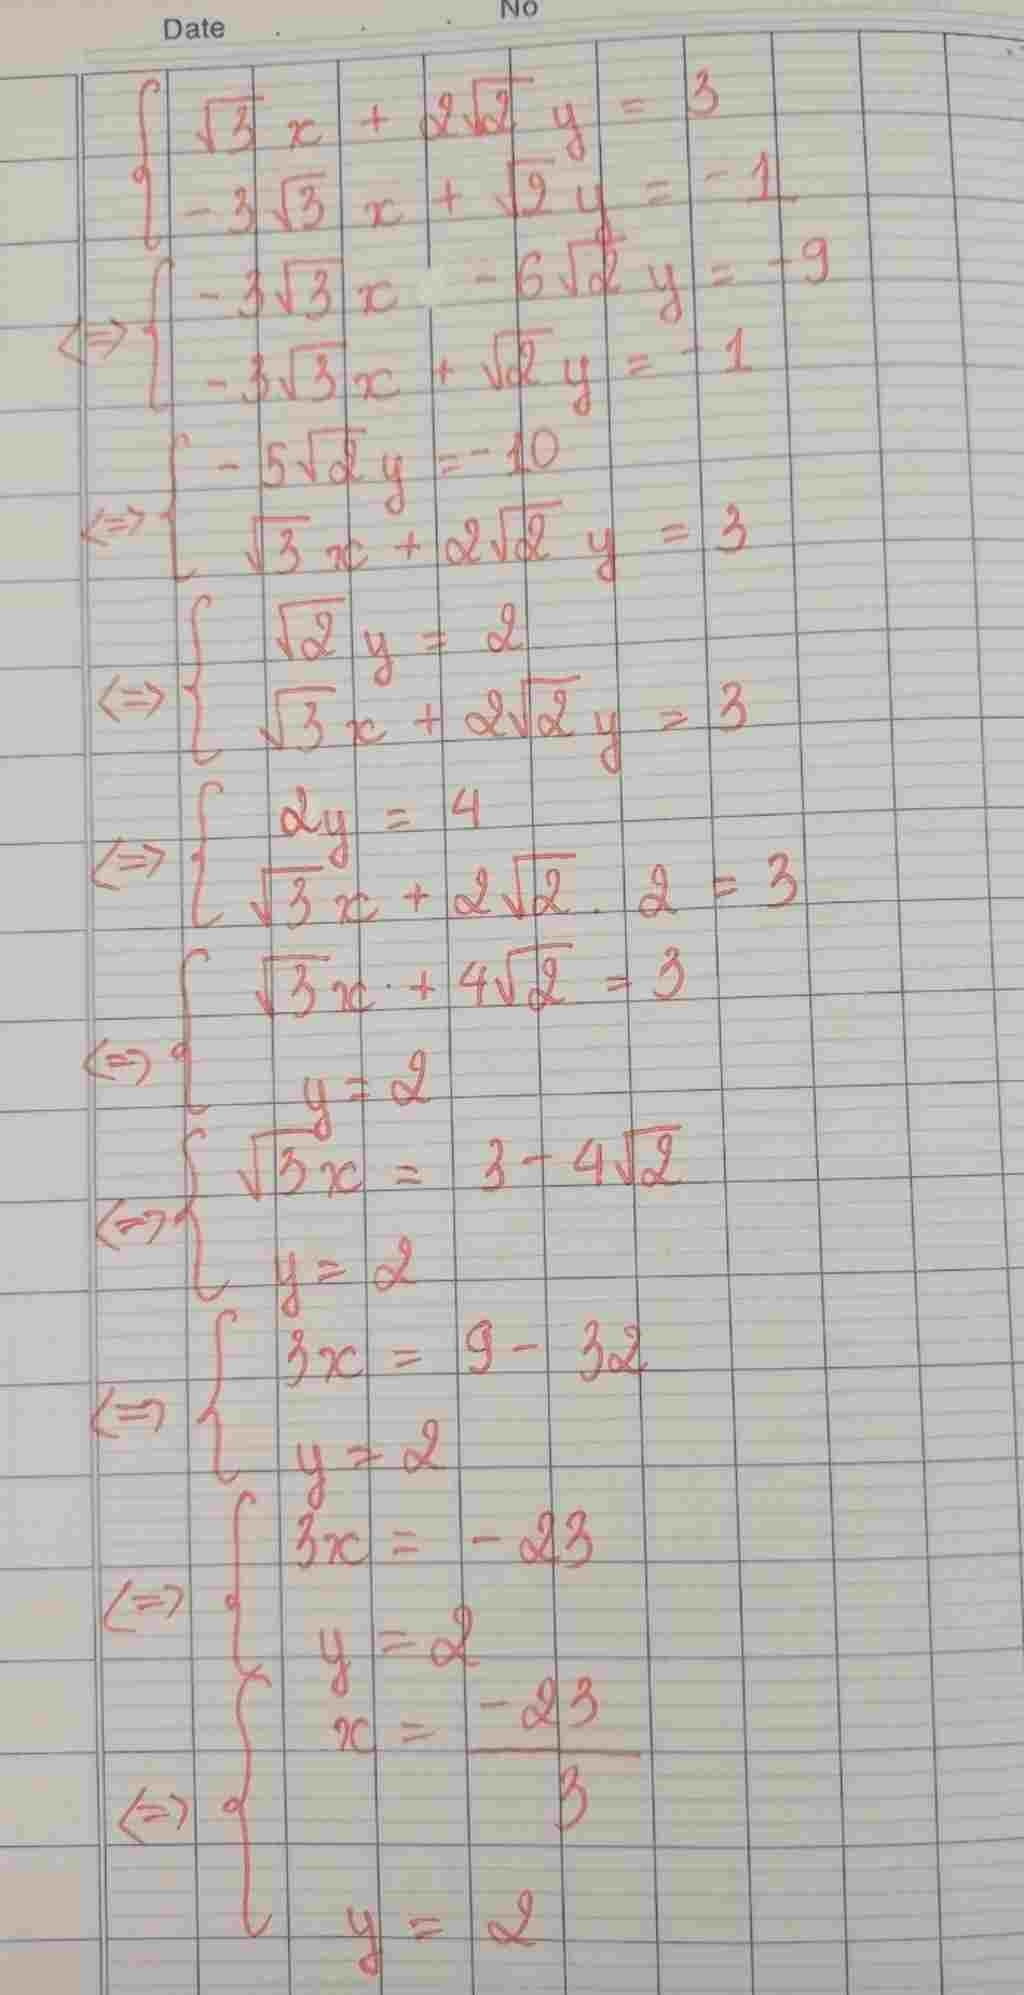 Date No
√3 x + 2√2 y = 3
-3√3 x + √2 y = -1
<=> -3√3 x - 6√2 y = -9
-3√3 x + √2 y = -1
<=> -5√2 y = -10
√3 x + 2√2 y = 3
<=> √2 y = 2
√3 x + 2√2 y = 3
<=> 2y = 4
√3 x + 2√2 . 2 = 3
<=> √3 x + 4√2 = 3
y = 2
<=> √3 x = 3 - 4√2
y = 2
<=> 3x = 9 - 32
y = 2
<=> 3x = -23
y = 2
<=> x = -23/3
y = 2